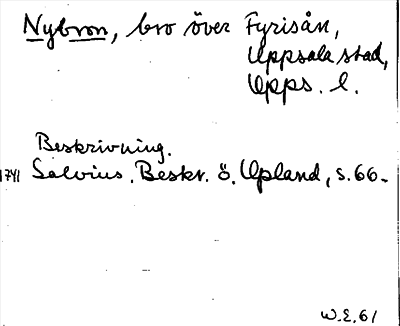 Nybron, bro över Fyrisån,
Uppsala stad,
Upps. l.
Beskrivning.
1741 Salvius. Beskr. ö. Upland, s. 66.
W.E. 61